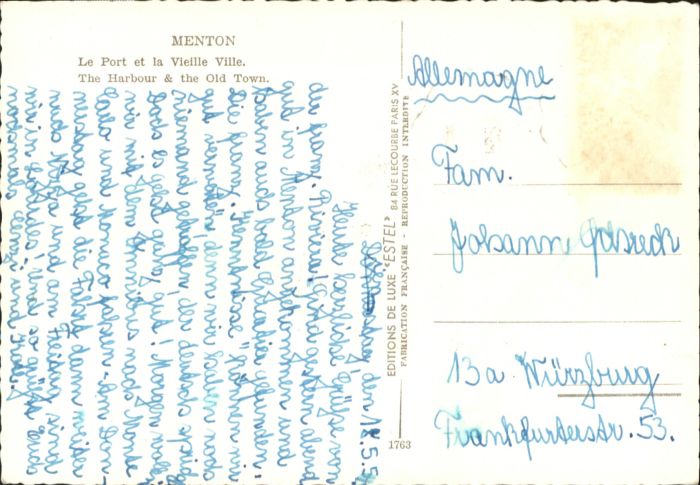 MENTON
Le Port et la Vieille Ville.
The Harbour & the Old Town.
den 12.5.5
herzliche Grüße von
der franz. Riviera! Sind gestern abend
gut in Menton angekommen und
haben auch bald Quartier gefunden.
Die franz. können wir
gut denn wir haben noch
niemand getroffen, der deutsch spricht
Doch es geht ganz gut! Morgen wollen
wir mit dem Omnibus nach Monte
Carlo und Monaco fahren. Am Don-
nerstag geht die Fahrt dann weiter
nach Nizza und am Freitag sind
wir in Und so grüßt Euch
nochmals und
EDITIONS DE LUXE "ESTEL" 84 RUE LECOURBE PARIS XV
FABRICATION FRANÇAISE - REPRODUCTION INTERDITE
1763
Allemagne
Fam.
Johann
13a Würzburg
Frankfurterstr. 53.